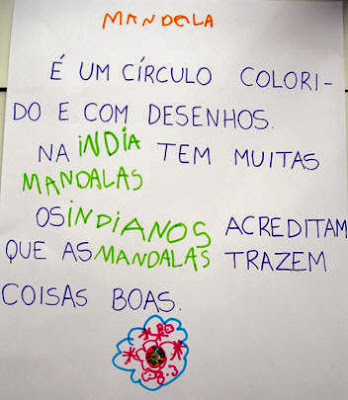 MANDALA
É UM CÍRCULO COLORI-
DO E COM DESENHOS.
NA ÍNDIA TEM MUITAS
MANDALAS
OS INDIANOS ACREDITAM
QUE AS MANDALAS TRAZEM
COISAS BOAS.